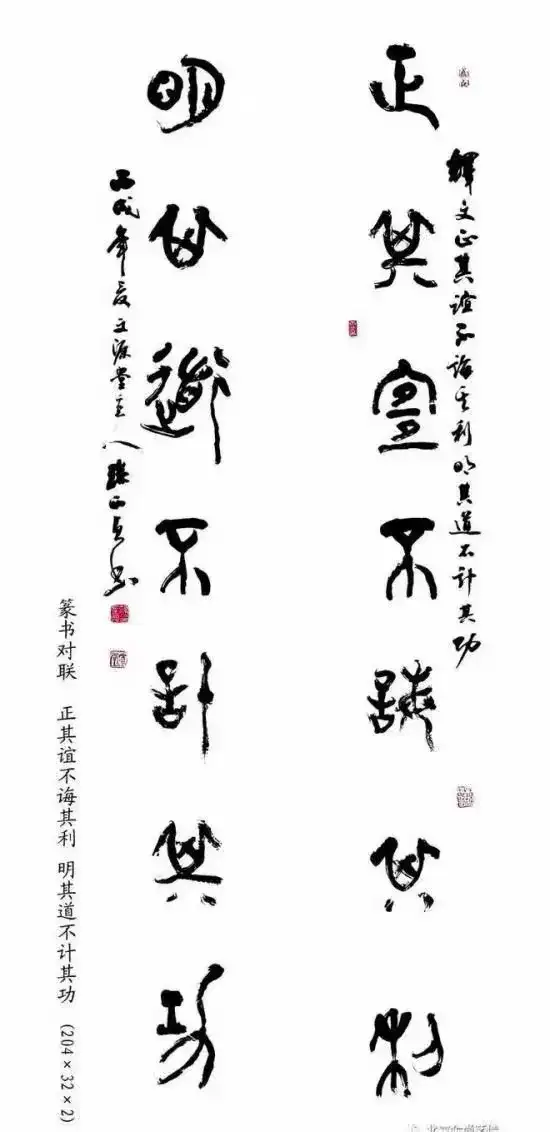 釋文正其谊不诲其利明其道不计其功
正其宜不誨其利
明其道不計其功
丙戌年夏文源堂主人
篆书对联 正其谊不诲其利 明其道不计其功 (204×32×2)